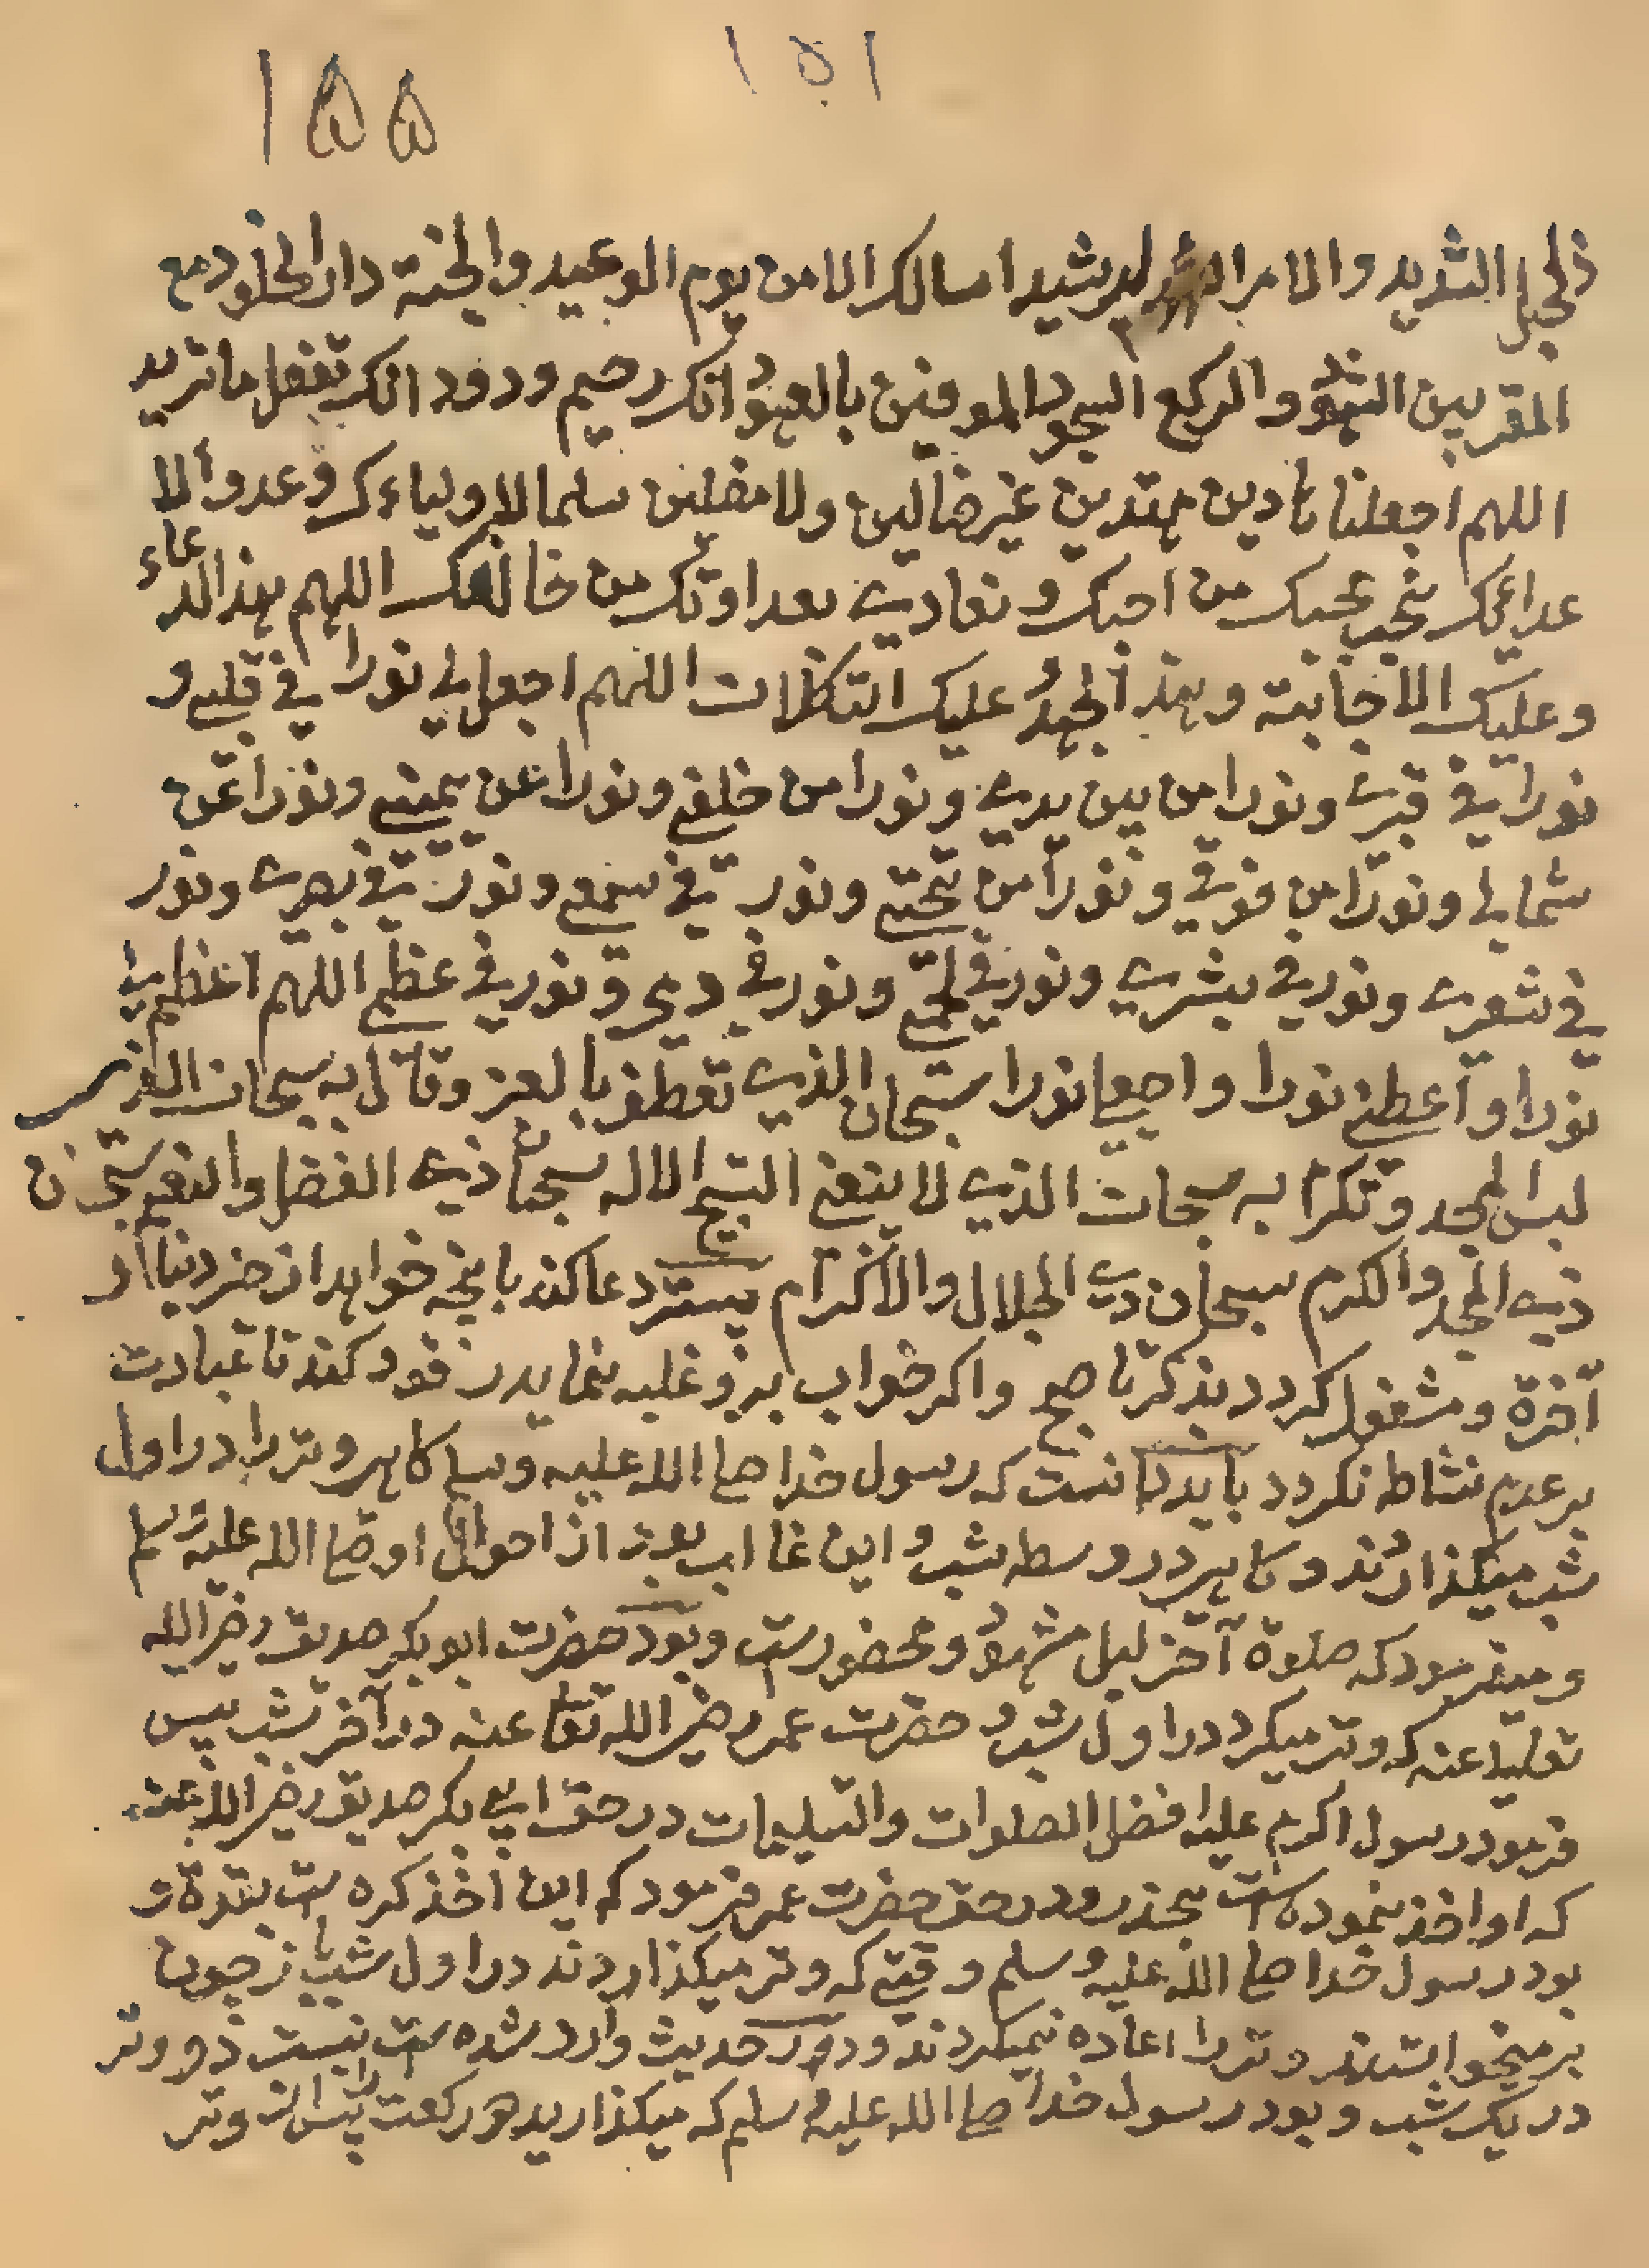 ۱۵۱
۱۵۵
ذلحبل الشدید والامر الرشید اسالک الامن یوم الوعید والجنة دار الخلود مع
المقربین الشهود والرکع السجود المومنین بالعهود انک رحیم ودود انک تفعل ما ترید
اللهم اجعلنا هادین مهتدین غیر ضالین ولا مضلین سلما لاولیاءک و عدوا لا
عدائک نحب بحبک من احبک و نعادی بعداوتک من خالفک اللهم هذا الدعاء
و علیک الاجابته و هذا الجهد علیک التکلان اللهم اجعل لی نورا فی قلبی و
نورا فی قبری و نورا من بین یدی و نورا من خلفی و نورا عن یمینی و نورا عن
شمالی و نورا من فوقی و نورا من تحتی و نور فی سمعی و نور فی بصری و نور
فی شعری و نور فی بشری و نور فی لحمی و نور فی دمی و نور فی عظمی اللهم اعظم لی
نورا و اعطنی نورا و اجعلی نورا سبحان الذی تعطف بالعز و قال به سبحان الذی
لبس المجد و تکرم به سبحان الذی لا ینبغی التسبیح الا له سبحان ذی الفضل والنعم سبحان
ذی المجد والکرم سبحان ذی الجلال والاکرام پستر دعا کند بانچه خواهد از خیر دنیا و
آخرة و مشغول کردد بذکر تا صبح واکر خواب برو غلبه نماید رقود کند تا عبادت
بر عدم نشاط نکردد باید دانست که رسول خدا صلی الله علیه وسلم کاهی وتر را در اول
شب میکذاردند و کاهی در وسط شب و این غالب بود از احوال او صلی الله علیه وسلم
و میفرمود که صلوة آخر لیل مشهود و محضورست و بود حضرت ابوبکر صدیق رضی الله
تعالی عنه که وتر میکرد در اول شب و حضرت عمر رضی الله تعا عنه در آخر شب پس
فرمود رسول اکرم علیه افضل الصلوات والتسلیمات در حق ابی بکر صدیق رضی الله عنه
که او اخذ نموده است بحذر و در حق حضرت عمر فرمود که این اخذ کرده ست بقوة و
بود رسول خدا صلی الله علیه وسلم وقتی که وتر میکذاردند در اول شب باز چون
بر میخواستند وتر را اعاده نمیکردند و در حدیث وارد شده ست نیست دو وتر
در یک شب و بود رسول خدا صلی الله علیه وسلم که میکذارید دو رکعت پس از وتر